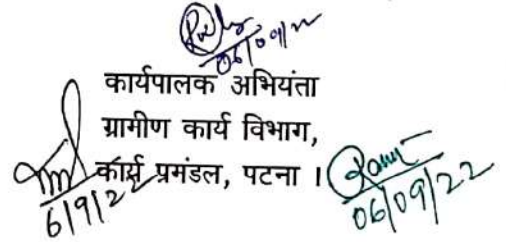 06/09/22
कार्यपालक अभियंता
ग्रामीण कार्य विभाग,
कार्य प्रमंडल, पटना ।
6/9/22
06/09/22